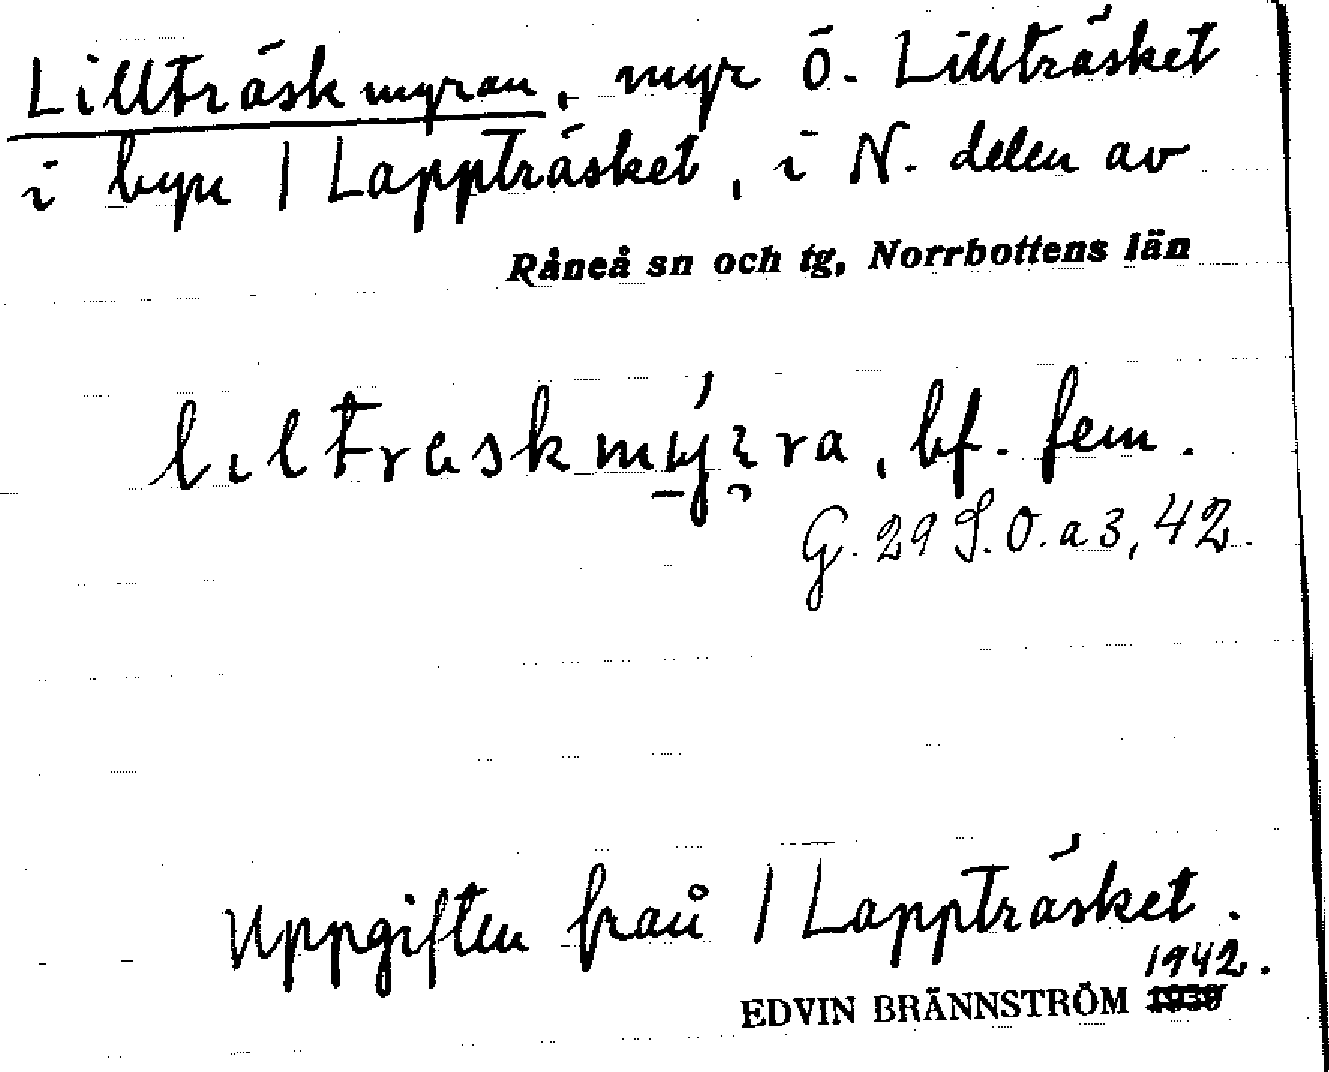 Lillträskmyran, myr Ö. Lillträsket
i byn 1 Lappträsket, i N. delen av
Råneå sn och tg, Norrbottens län
bf. fem.
G. 29 S.O. a 3, 42.
Uppgiften från 1 Lappträsket.
1942.
EDVIN BRÄNNSTRÖM 1939